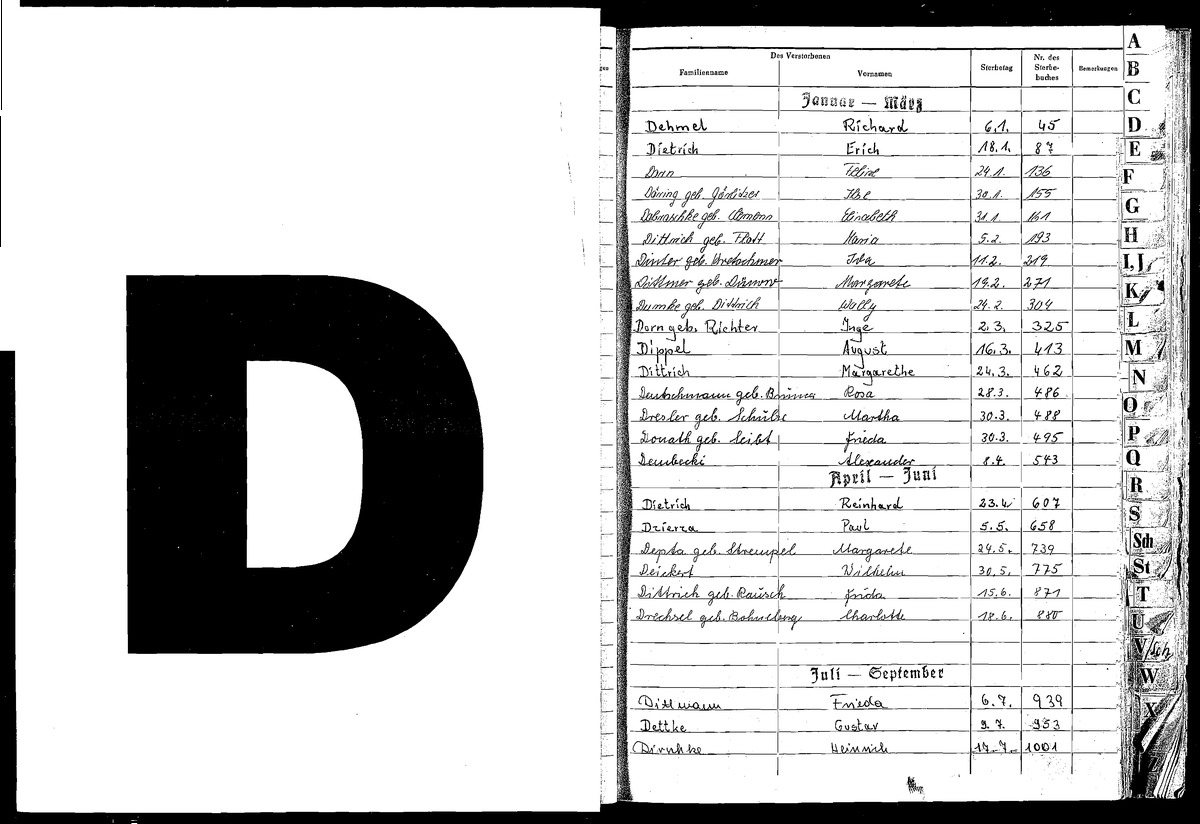 D
Des Verstorbenen
Familienname Vornamen Sterbetag Nr. des Sterbe-buches Bemerkungen
Januar — März
Dehmel Richard 6.1. 45
Dietrich Erich 18.1. 87
24.1. 136
Döring geb. Görlitzer Ilse 30.1. 155
Dobraschke geb. Elisabeth 31.1. 161
Dittrich geb. Flatt Maria 5.2. 193
Dinter geb. Kretschmer Ida 11.2. 219
Dittmer geb. Margarete 19.2. 271
Dumke geb. Dittrich Wally 24.2. 304
Dorn geb. Richter Inge 2.3. 325
Dippel August 16.3. 413
Dittrich Margarethe 24.3. 462
Deutschmann geb. Rosa 28.3. 486
Dresler geb. Schulze Martha 30.3. 488
Donath geb. Leibt Frieda 30.3. 495
Dembecki Alexander 8.4. 543
April — Juni
Dietrich Reinhard 23.4. 607
Dzierza Paul 5.5. 658
Depta geb. Strempel Margarete 24.5. 739
Deickert Wilhelm 30.5. 775
Dittrich geb. Rausch Frida 15.6. 871
Drechsel geb. Charlotte 18.6. 880
Juli — September
Dittmann Frieda 6.7. 939
Dettke Gustav 9.7. 953
Heinrich 17.7. 1001
A
B
C
D
E
F
G
H
I, J
K
L
M
N
O
P
Q
R
S
Sch
St
T
U
V/Sch
W
X
Z